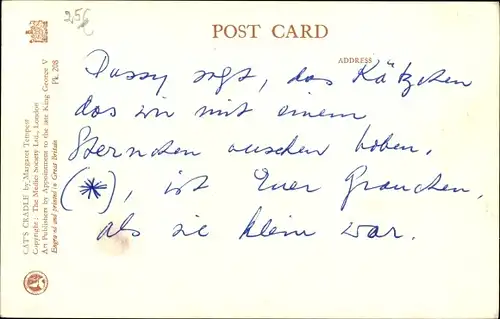 256
POST CARD
ADDRESS
Pussy sagt, das Kätzchen
das wir mit einem
Sternchen versehen haben,
(*), ist Euer Frauchen,
als sie klein war.
CAT'S CRADLE by Margaret Tempest
Copyright: The Medici Society Ltd., London
Art Publishers by Appointment to the late King George V
Engraved and printed in Great Britain
Pk. 208